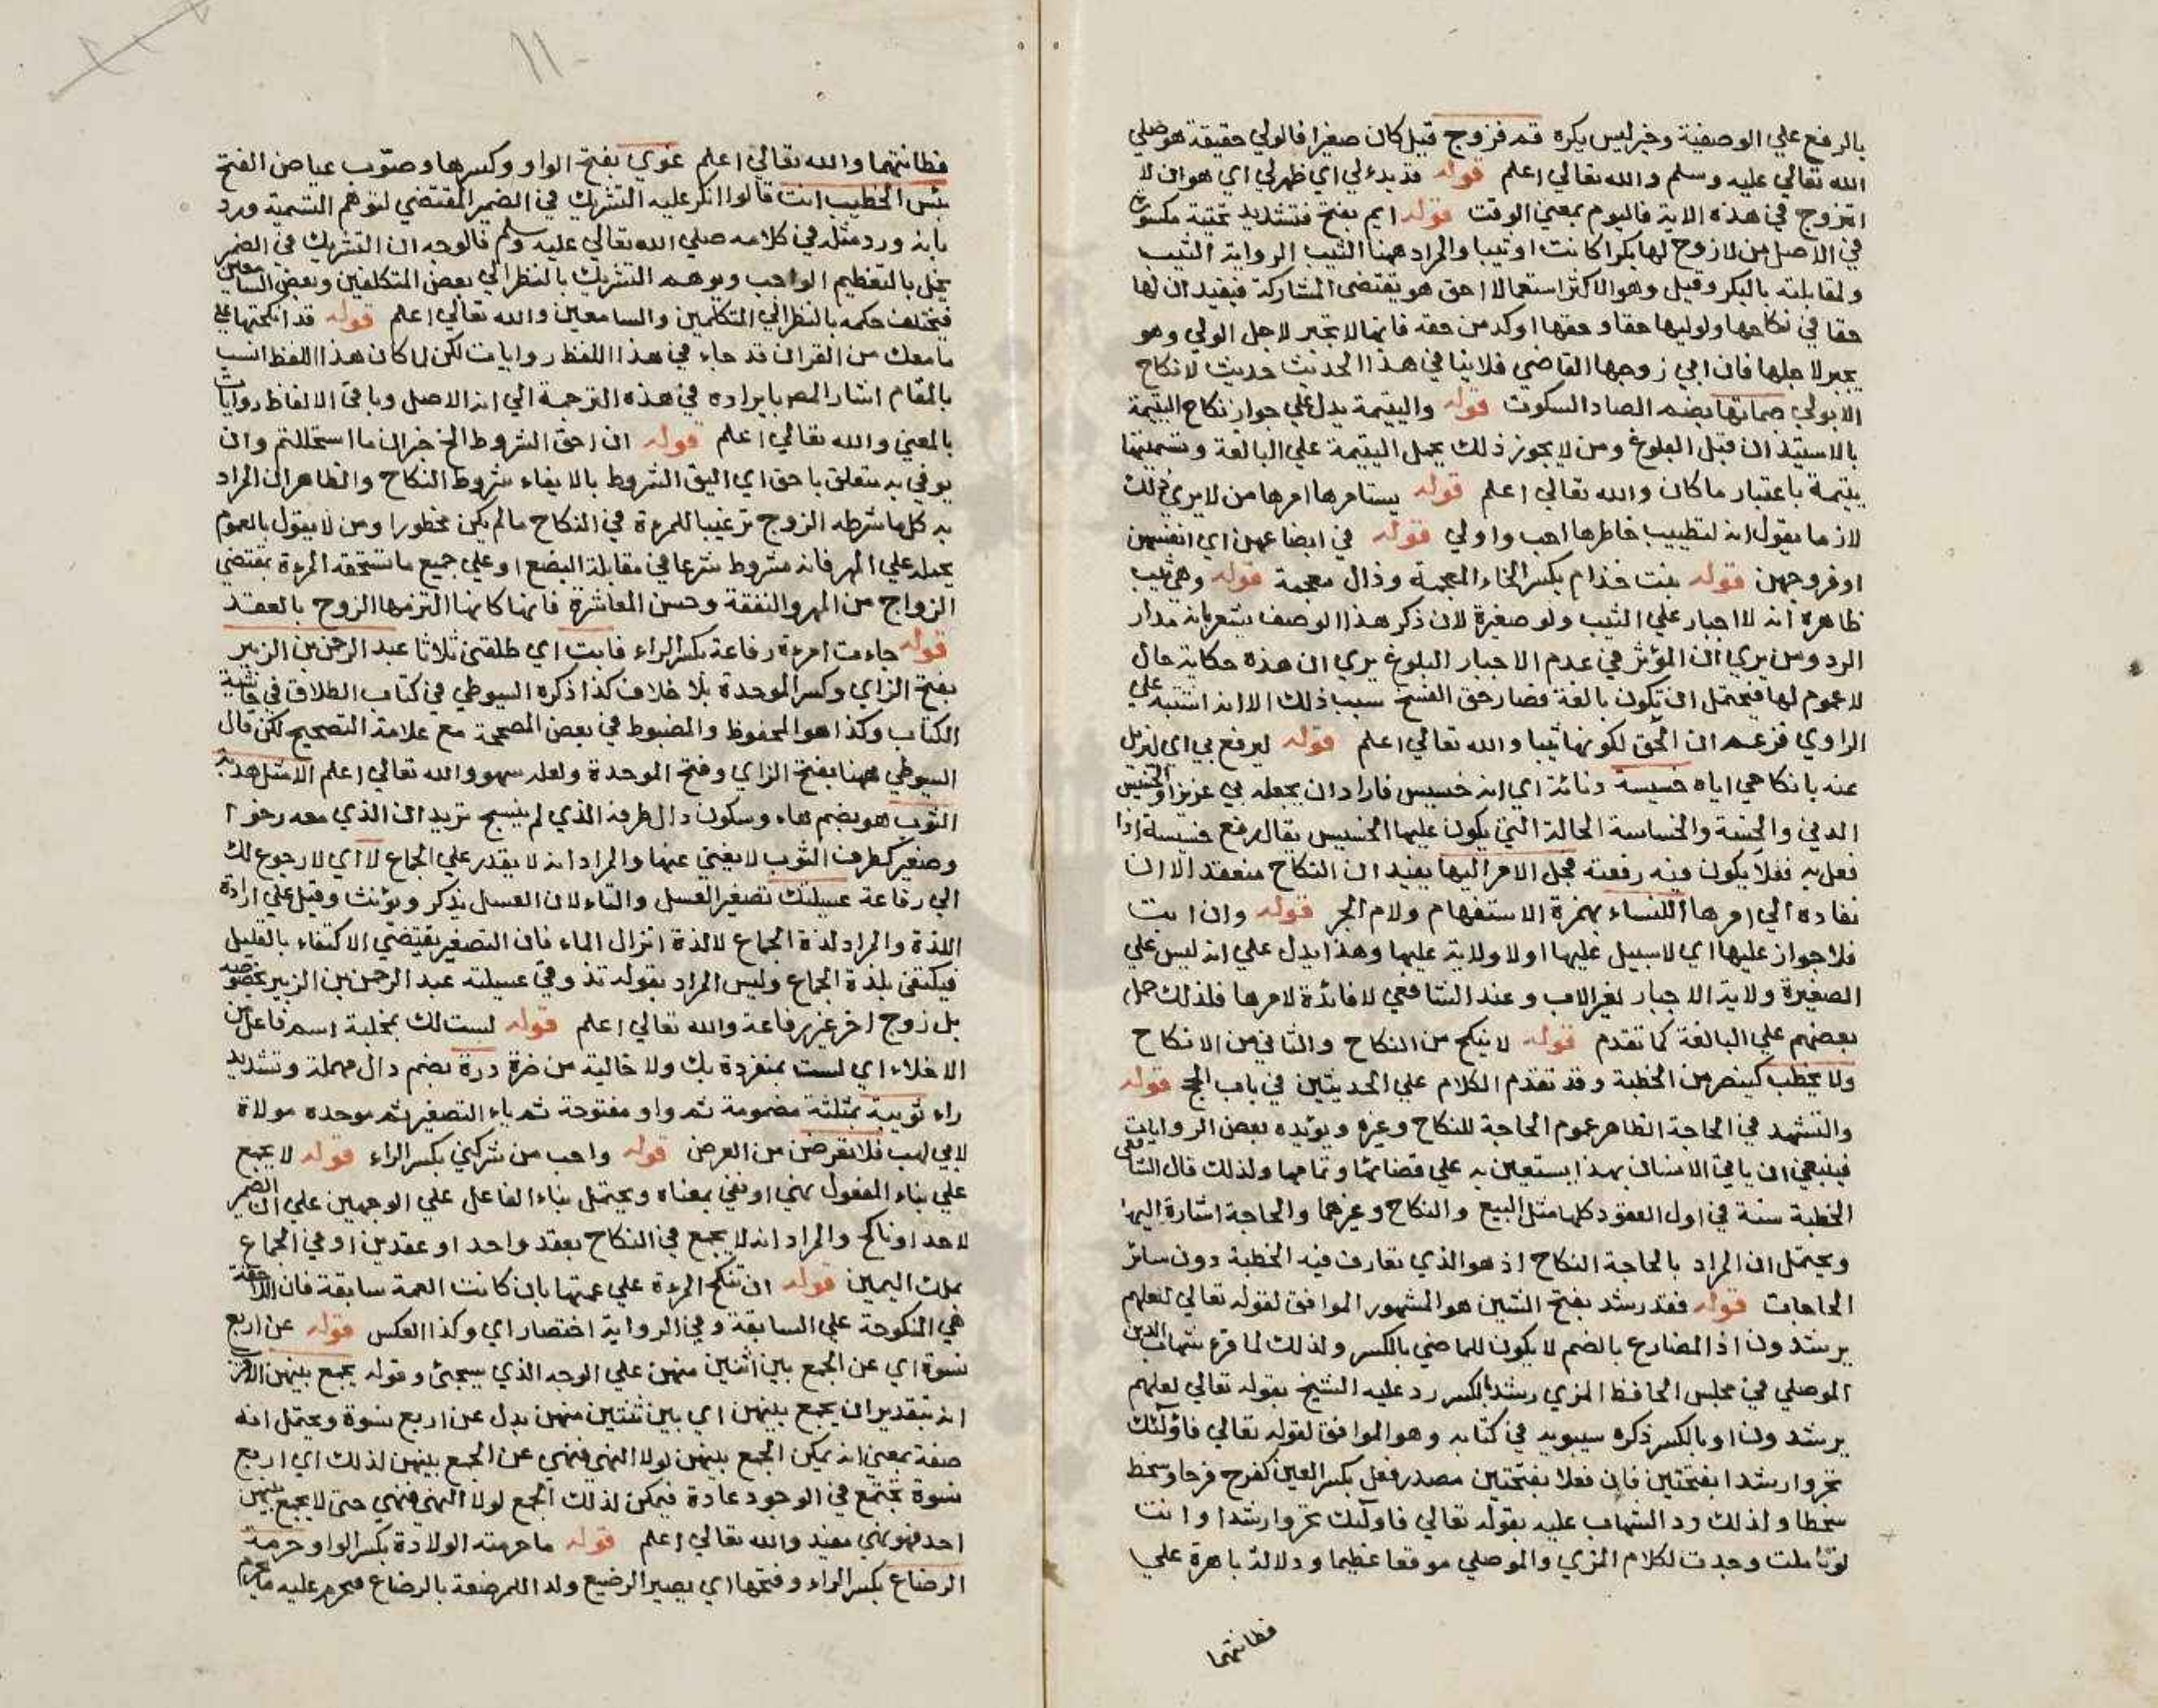 بالرفع علي الوصفية وخبر ليس بكره قم فزوج قيل كان صغيرا فالولي حقيقة هو صلي
الله تعالي عليه وسلم والله تعالي اعلم قوله قد بدء لي اي ظهر لي اي هو ان لا
اتزوج في هذه الاية فاليوم بمعني الوقت قوله ايم بفتح فتشديد تحتية مكسورة
في الاصل من لا زوج لها بكرا كانت او ثيبا والمراد ههنا الثيب الرواية الثيب
ولمقابلته بالبكر وقيل وهو الاكثر استعمالا احق هو يقتضي المشاركة فيفيد ان لها
حقا في نكاحها ولوليها حقا وحقها اوكد من حقه فانها لا تجبر لاجل الولي وهو
يجبر لاجلها فان ابي زوجها القاضي فلا ينافي هذا الحديث حديث لا نكاح
الا بولي صماتها بضم الصاد السكوت قوله واليتيمة يدل علي جواز نكاح اليتيمة
بالاستيذان قبل البلوغ ومن لا يجوز ذلك يحمل اليتيمة علي البالغة وتسميتها
يتيمة باعتبار ما كان والله تعالي اعلم قوله يستامرها امرها من لا يري ذلك
لازما يقول انه لتطييب خاطرها احب واولي قوله في ابضاعهن اي انفسهن
او فروجهن قوله بنت خذام بكسر الخاء المعجمة وذال معجمة قوله وهي ثيب
ظاهره انه لا اجبار علي الثيب ولو صغيرة لان ذكر هذا الوصف يشعر بانه مدار
الرد ومن يري ان المؤثر في عدم الاجبار البلوغ يري ان هذه حكاية حال
لا عموم لها فيحتمل ان تكون بالغة فصار حق الفسخ سبب ذلك الا انه اشتبه علي
الراوي فزعم ان الحق لكونها ثيبا والله تعالي اعلم قوله ليرفع بي اي ليزيل
عنه بانكاحي اياه خسيسة دنائة اي انه خسيس فاراد ان يجعله بي عزيزا والخسيس
الدني والخسة والخساسة الحالة التي يكون عليها الخسيس يقال رفع خسيسة اذا
فعل به فعلا يكون فيه رفعته فجعل الامر اليها يفيد ان النكاح منعقد الا ان
نفاده الي امرها اللنساء بهمزة الاستفهام ولام الجر قوله وان ابت
فلا جواز عليها اي لا سبيل عليها او لا ولاية عليها وهذا يدل علي انه ليس علي
الصغيرة ولاية الاجبار لغير الاب وعند الشافعي لا فائدة لامرها فلذلك حمل
بعضهم علي البالغة كما تقدم قوله لا ينكح من النكاح والثاني من الانكاح
ولا يخطب كينصر من الخطبة وقد تقدم الكلام علي الحديثين في باب الحج قوله
والتشهد في الحاجة الظاهر عموم الحاجة للنكاح وغيره ويؤيده بعض الروايات
فينبغي ان ياتي الانسان بهذا يستعين به علي قضائها وتمامها ولذلك قال الشافعي
الخطبة سنة في اول العقود كلها مثل البيع والنكاح وغيرهما والحاجة اشارة اليها
ويحتمل ان المراد بالحاجة النكاح اذ هو الذي تعارف فيه الخطبة دون سائر
الحاجات قوله فقد رشد بفتح الشين هو المشهور الموافق لقوله تعالي لعلهم
يرشدون اذ المضارع بالضم لا يكون للماضي بالكسر ولذلك لما قرء شهاب الدين
الموصلي في مجلس الحافظ المزي رشد بالكسر رد عليه الشيخ بقوله تعالي لعلهم
يرشدون او بالكسر ذكره سيبويه في كتابه وهو الموافق لقوله تعالي فاولئك
تحروا رشدا بفتحتين فان فعلا بفتحتين مصدر فعل بكسر العين كفرح فرحا وسخط
سخطا ولذلك رد الشهاب عليه بقوله تعالي فاولئك تحروا رشدا وانت
لو تاملت وجدت لكلام المزي والموصلي موقعا عظيما ودلالة باهرة علي
فطانتهما
١١
فطانتهما والله تعالي اعلم غوي بفتح الواو وكسرها وصوّب عياض الفتح
بئس الخطيب انت قالوا انكر عليه التشريك في الضمير المقتضي لتوهم التسمية ورد
بانه ورد مثله في كلامه صلي الله تعالي عليه وسلم فالوجه ان التشريك في الضمير
يخل بالتعظيم الواجب ويوهم التشريك بالنظر الي بعض المتكلمين وبعض السامعين
فيختلف حكمه بالنظر الي المتكلمين والسامعين والله تعالي اعلم قوله قد انكحتها علي
ما معك من القران قد جاء في هذا اللفظ روايات لكن لما كان هذا اللفظ انسب
بالمقام اشار المص بايراده في هذه الترجمة الي انه الاصل وباقي الالفاظ روايات
بالمعني والله تعالي اعلم قوله ان احق الشروط الخ خبر ان ما استحللتم وان
يوفي به متعلق باحق اي اليق الشروط بالايفاء شروط النكاح والظاهر ان المراد
به كل ما شرطه الزوج ترغيبا للمرءة في النكاح ما لم يكن محظورا ومن لا يقول بالعموم
يحمله علي المهر فانه مشروط شرعا في مقابلة البضع او علي جميع ما تستحقه المرءة بمقتضي
الزواج من المهر والنفقة وحسن المعاشرة فانها كانها التزمها الزوج بالعقد
قوله جاءت امرءة رفاعة بكسر الراء فابت اي طلقني ثلاثا عبد الرحمن بن الزبير
بفتح الزاي وكسر الموحدة بلا خلاف كذا ذكره السيوطي في كتاب الطلاق في حاشية
الكتاب وكذا هو المحفوظ والمضبوط في بعض المصححة مع علامة التصحيح لكن قال
السيوطي ههنا بفتح الزاي وفتح الموحدة ولعله سهو والله تعالي اعلم الا مثل هدبة
الثوب هو بضم هاء وسكون دال طرفه الذي لم ينسج تريد ان الذي معه رخو ا
وصغير كطرف الثوب لا يغني عنها والمراد انه لا يقدر علي الجماع لا اي لا رجوع لك
الي رفاعة عسيلتك تصغير العسل والتاء لان العسل يذكر ويؤنث وقيل علي ارادة
اللذة والمراد لذة الجماع لا لذة انزال الماء فان التصغير يقتضي الاكتفاء بالقليل
فيكتفي بلذة الجماع وليس المراد بقوله تذوقي عسيلته عبد الرحمن بن الزبير بخصوصه
بل زوج اخر غير رفاعة والله تعالي اعلم قوله لست لك بمخلية اسم فاعل من
الاخلاء اي لست بمنفردة بك ولا خالية من ضرة درة بضم دال مهملة وتشديد
راء ثويبة بمثلثة مضمومة ثم واو مفتوحة ثم ياء التصغير ثم موحده مولاة
لابي لهب فلا تعرضن من العرض قوله واحب من شركني بكسر الراء قوله لا يجمع
علي بناء المفعول نهي او نفي بمعناه ويحتمل بناء الفاعل علي الوجهين علي ان الضمير
لاحد او ناكح والمراد انه لا يجمع في النكاح بعقد واحد او عقدين او في الجماع
بملك اليمين قوله ان تنكح المرءة علي عمتها بان كانت العمة سابقة فان اللاحقة
هي المنكوحة علي السابقة وفي الرواية اختصار اي وكذا العكس قوله عن اربع
نسوة اي عن الجمع بين اثنين منهن علي الوجه الذي سيجئ وقوله يجمع بينهن
انه بتقدير ان يجمع بينهن اي بين ثنتين منهن بدل عن اربع نسوة ويحتمل انه
صفة بمعني انه يمكن الجمع بينهن لولا النهي فنهي عن الجمع بينهن لذلك اي اربع
نسوة تجتمع في الوجود عادة فيمكن لذلك الجمع لولا النهي فنهي حتي لا يجمع بينهن
احد فهو نهي مفيد والله تعالي اعلم قوله ما حرمته الولادة بكسر الواو حرمة
الرضاع بكسر الراء وفتحها اي يصير الرضيع ولد المرضعة بالرضاع فيحرم عليه ما يحرم